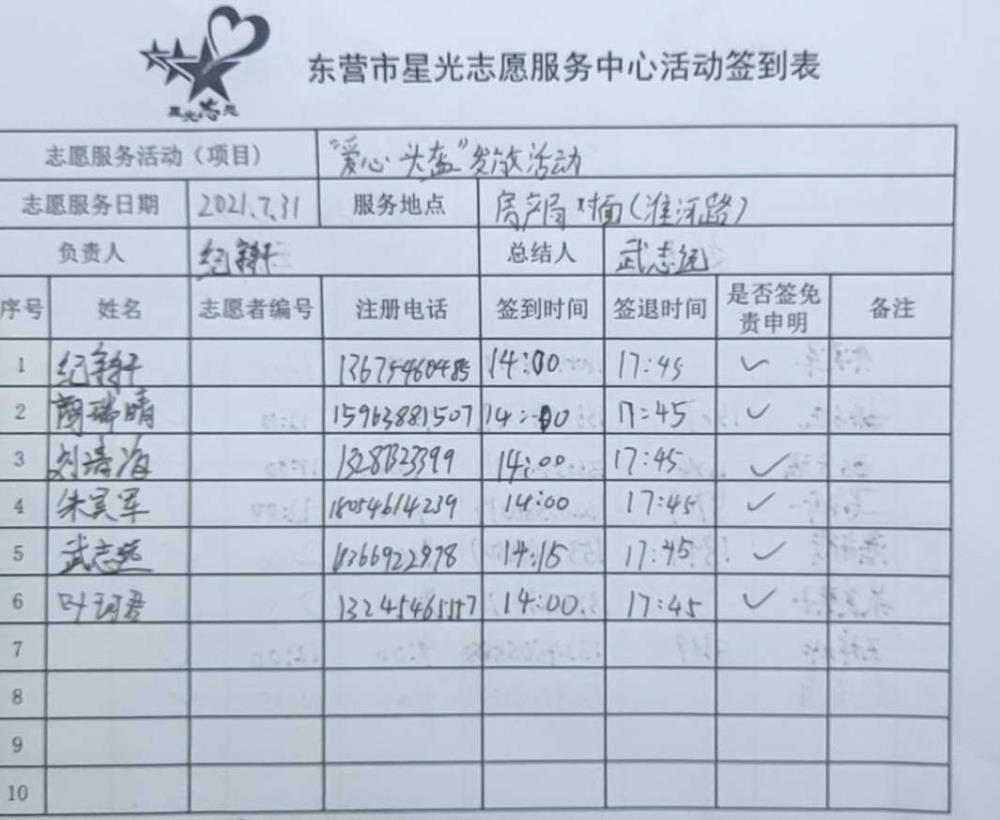 星光志愿
东营市星光志愿服务中心活动签到表
志愿服务活动（项目） "爱心头盔"发放活动
志愿服务日期 2021.7.31 服务地点 房产局对面(淮河路)
负责人 总结人 武志远
序号 姓名 志愿者编号 注册电话 签到时间 签退时间 是否签免责申明 备注
1 13675460485 14:00 17:45 ✓
2 15963881507 14:00 17:45 ✓
3 14:00 17:45 ✓
4 18054614239 14:00 17:45 ✓
5 武志远 14:15 17:45 ✓
6 14:00. 17:45 ✓
7
8
9
10